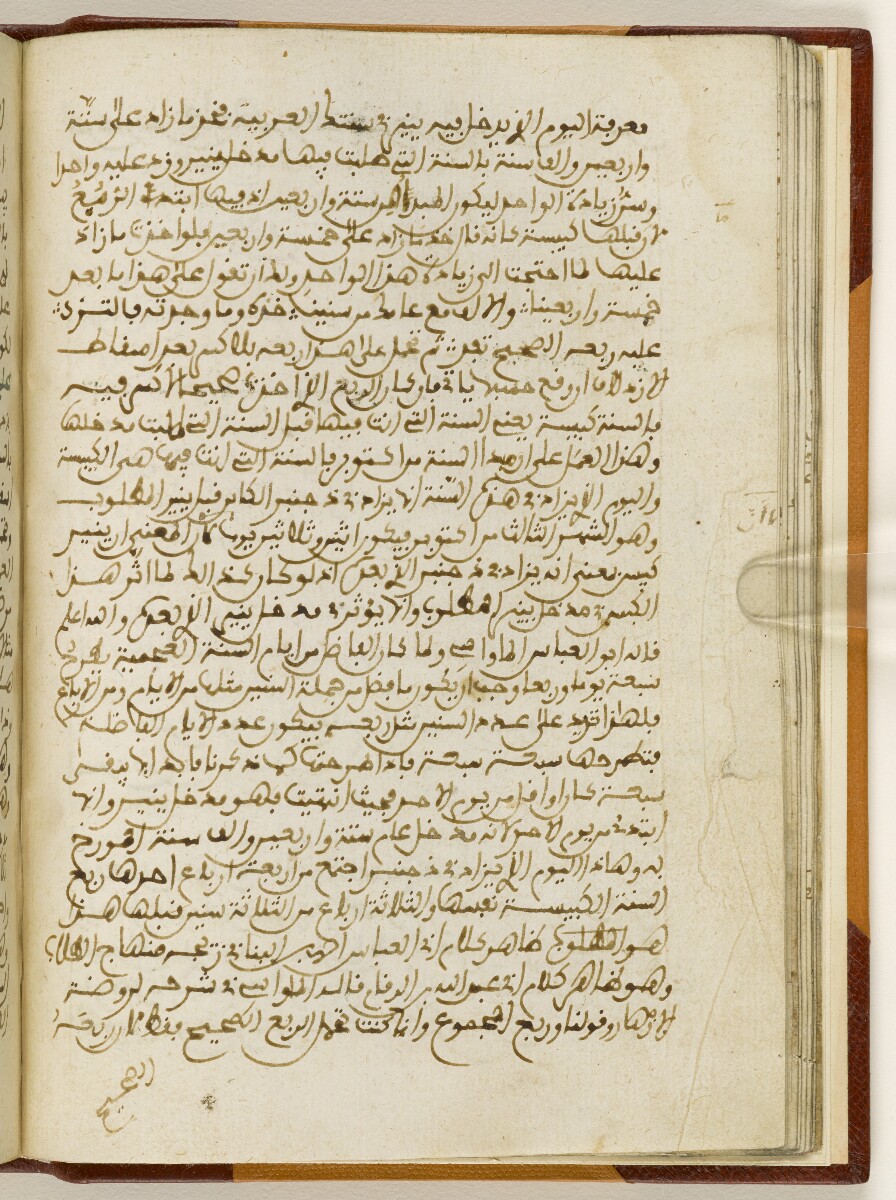 معرفة اليوم الذي يدخل فيه ينير في سنتك العربية فخذ ما زاد على ستة
واربعين والف سنة بالسنة التي طلبت فيها مدخل ينير وزد عليه واحدا
وسر زيادة الواحد ليكون المبدأ من ستة واربعين اذ فيها ابتدئ
لان قبلها كبيسة كانه قال خذ ما زاد على خمسة واربعين فلو اخذت ما زاد
عليها لما احتجت الى زيادة هذا الواحد ولك ان تقول على هذا ما بعد
خمسة واربعينا والالف مع عامك من سنينا خذه وما وجدته بالتزد
عليه ربعه الصحيح ثم تحمل على هذا ربعه بلا كسر بعد اسقاط
لان ان وقع فان كان الربع الذي اخذت صحيحا لا كسر فيه
فالسنة كبيسة يعني السنة التي انت فيها قبل السنة التي طلبت مدخلها
وهذا العمل على ان مبدأ السنة من اكتوبر فالسنة التي انت فيها هي الكبيسة
واليوم الذي يزاد في هذه السنة انما يزاد في دجنبر الكاين قبل ينير المطلوب
وهو الشهر الثالث من اكتوبر فيكون اثنين وثلاثين يوما كان المعنى ان ينير
كبس بمعنى انه يزاد في دجنبر الذي بعده اذ لو كان كذلك لما اثر هذا
الكبس في مدخل ينير المطلوب وانما يؤثر في مدخل ينير الذي بعده والله اعلم
قال ابو العباس الماواسي ولما كان الفاضل من ايام السنة العجمية بطرح
سبعة يوما وربعا وجب ان يكون ما فضل من جملة السنين مثلها من الايام ومن الارباع
فلهذا تزيد على عدد السنين مثل ربعه فيكون عدد الايام الفاضلة
فتطرحها سبعة سبعة فاذا طرحتها كما ذكرنا فابدا بما بقي
سبعة كان او اقل من يوم الاحد فحيث انتهيت فهو مدخل ينير وانما
ابتدئ من يوم الاحد لانه مدخل عام ستة واربعين والف سنة المورخ
به وهذا اليوم الذي يزاد في دجنبر اجتمع من اربعة ارباع احدها ربع
السنة الكبيسة نفسها والثلاثة ارباع من الثلاثة سنين قبلها هذا
هو المطلوب ظاهر كلام ابي العباس ابن البنا في ترجمه منهاج الطالب
وهو ظاهر كلام ابي عبد الله قال الماواسي في شرحه لروضة
الازهار وقولنا وربع المجموع وانما كنت تحمل الربع الصحيح فقط لان ربعه
الصحيح